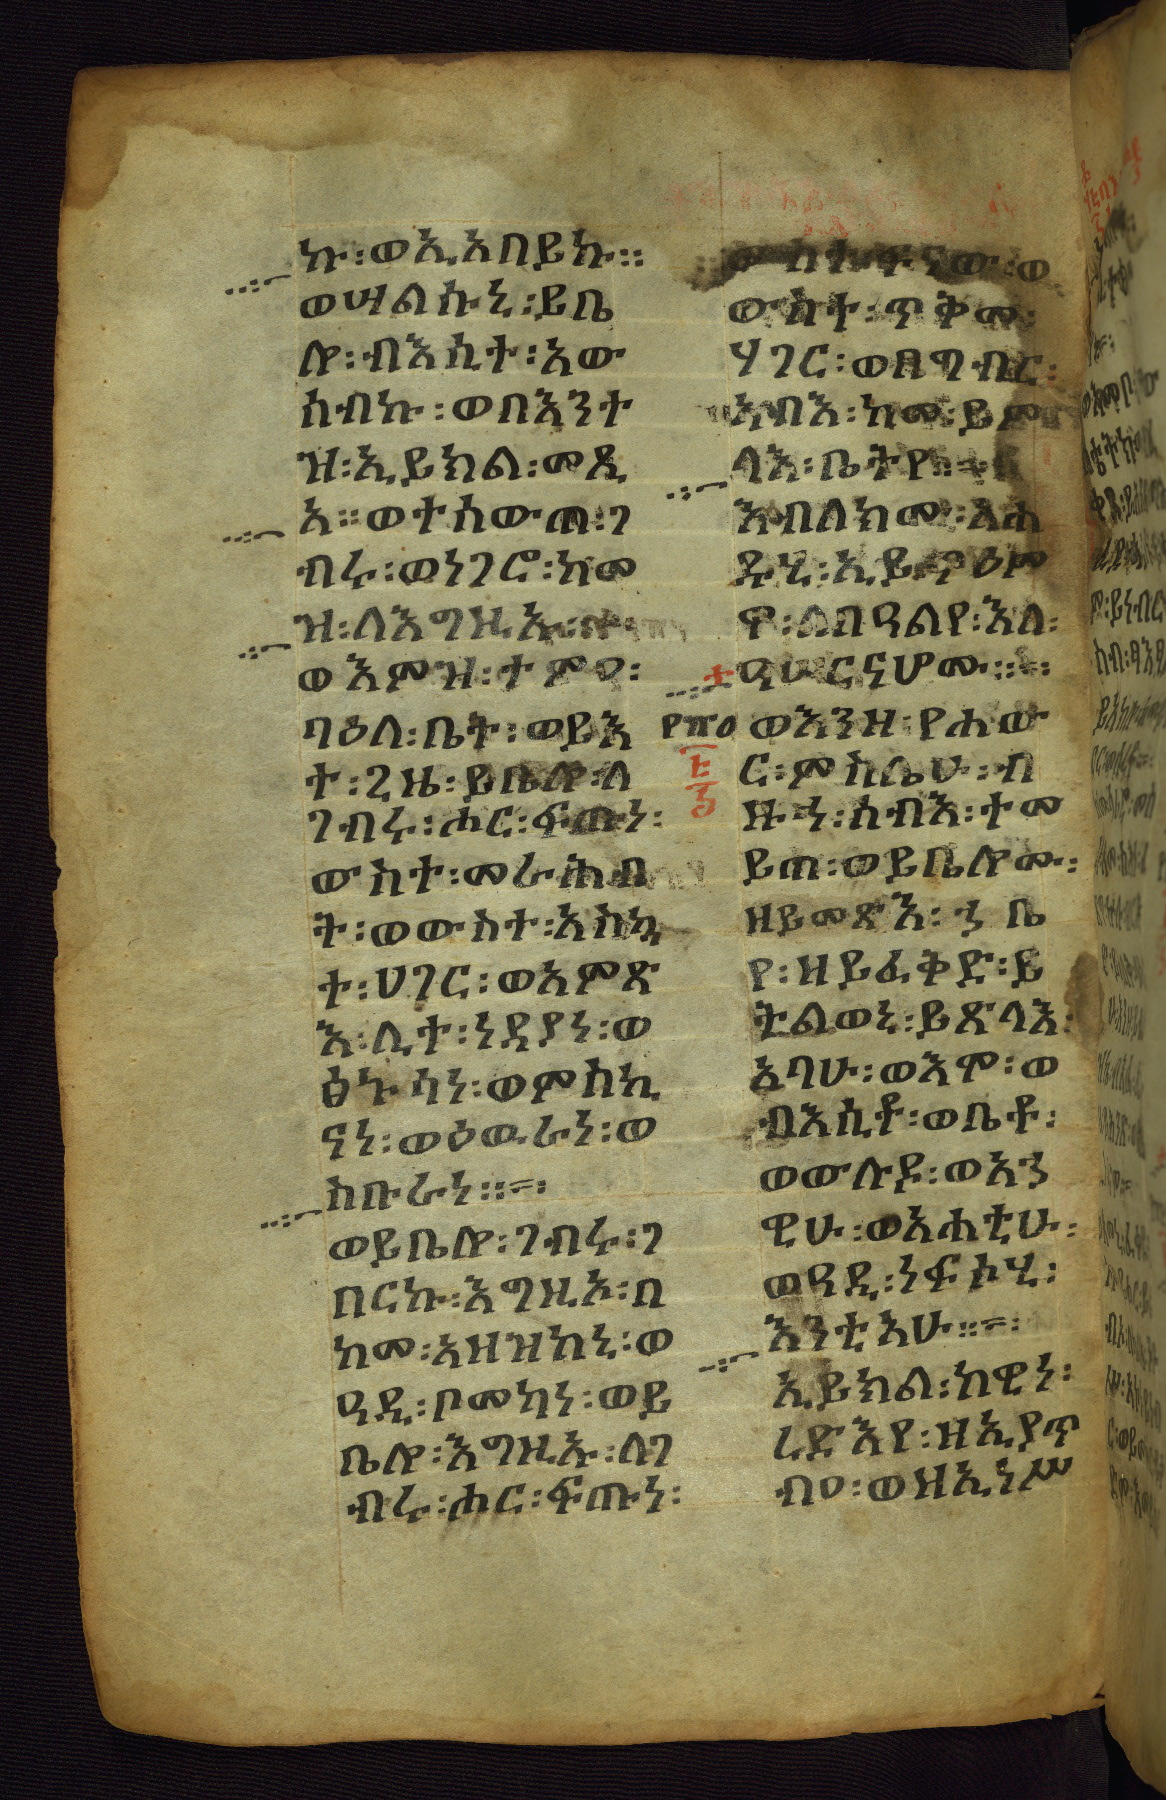 ኩ፡ወኢአበይኩ፡፡
ወሣልስኒ፡ይቤ
ሎ፡ብእሲተ፡አው
ሰብኩ፡ወበእንተ
ዝ፡ኢይክል፡መጺ
አ፡፡ወተሰውጠ፡ገ
ብሩ፡ወነገሮ፡ከመ
ዝ፡ለእግዚኡ፡
ወእምዝ፡ተምዐ፡
ባዕለ፡ቤት፡ወይእ
ተ፡ጊዜ፡ይቤሎ፡ለ
ገብሩ፡ሑር፡ፍጡነ፡
ውስተ፡መራሕብ
ት፡ወውስተ፡አስኳ
ተ፡ሀገር፡ወአምጽ
እ፡ሊተ፡ነዳያነ፡ወ
ፅኑሳነ፡ወምስኪ
ናነ፡ወዕዉራነ፡ወ
ስቡራነ፡፡=፡
ወይቤሎ፡ገብሩ፡ገ
በርኩ፡እግዚኦ፡በ
ከመ፡አዘዝከኒ፡ወ
ዓዲ፡ቦመካነ፡ወይ
ቤሎ፡እግዚኡ፡ለገ
ብሩ፡ሑር፡ፍጡነ፡
ውስተ፡ፍናው፡ወ
ውስተ፡ጥቅመ፡
ሃገር፡ወአግብር፡
ኣብእ፡ከመ፡ይም
ላእ፡ቤትየ፡፡=፡
እብለክሙ፡ለሐ
ዱሂ፡ኢይጥዕሞ
ዋ፡ለበዓልየ፡እለ፡
ዓሠርናሆሙ፡፡=፡
፻፹፭ ወእንዘ፡የሐው
ር፡ምስሌሁ፡ብ
ዙኅ፡ሰብእ፡ተመ
ይጠ፡ወይቤሎሙ፡
ዘይመጽእ፡ኀቤ
የ፡ዘይፈቅድ፡ይ
ትልወኒ፡ይጽላእ፡
አባሁ፡ወእሞ፡ወ
ብእሲቶ፡ወቤቶ፡
ወውሉዶ፡ወአኀ
ዊሁ፡ወአሐቲሁ፡
ወዓዲ፡ነፍሶሂ፡
እንቲአሁ፡፡=፡
ኢይክል፡ከዊነ፡
ረድእየ፡ዘኢያጥ
ብዐ፡ወዝኢነሥ